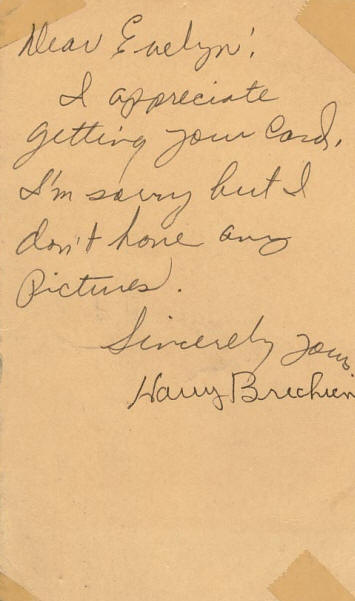 Dear Evelyn!
I appreciate
getting your card.
I'm sorry but I
don't have any
Pictures.
Sincerely yours
Harry Brecheen